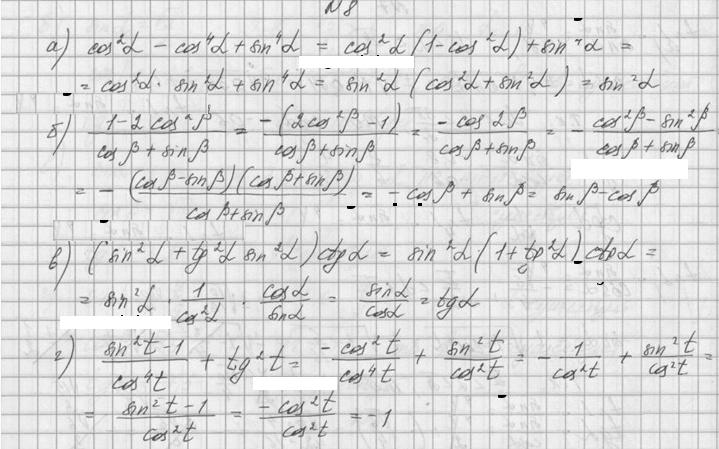 №8
а) cos²α − cos⁴α + sin⁴α = cos²α (1−cos²α) + sin⁴α =
= cos²α · sin²α + sin⁴α = sin²α (cos²α + sin²α) = sin²α
б) (1−2cos²β)/(cosβ + sinβ) = −(2cos²β −1)/(cosβ + sinβ) = −cos2β/(cosβ + sinβ) = − (cos²β − sin²β)/(cosβ + sinβ)
= − (cosβ−sinβ)(cosβ+sinβ)/(cosβ+sinβ) = − cosβ + sinβ = sinβ − cosβ
в) (sin²α + tg²α sin²α) ctgα = sin²α (1+tg²α) ctgα =
= sin²α · 1/cos²α · cosα/sinα = sinα/cosα = tgα
г) (sin²t −1)/cos⁴t + tg²t = −cos²t/cos⁴t + sin²t/cos²t = − 1/cos²t + sin²t/cos²t =
= (sin²t −1)/cos²t = −cos²t/cos²t = −1